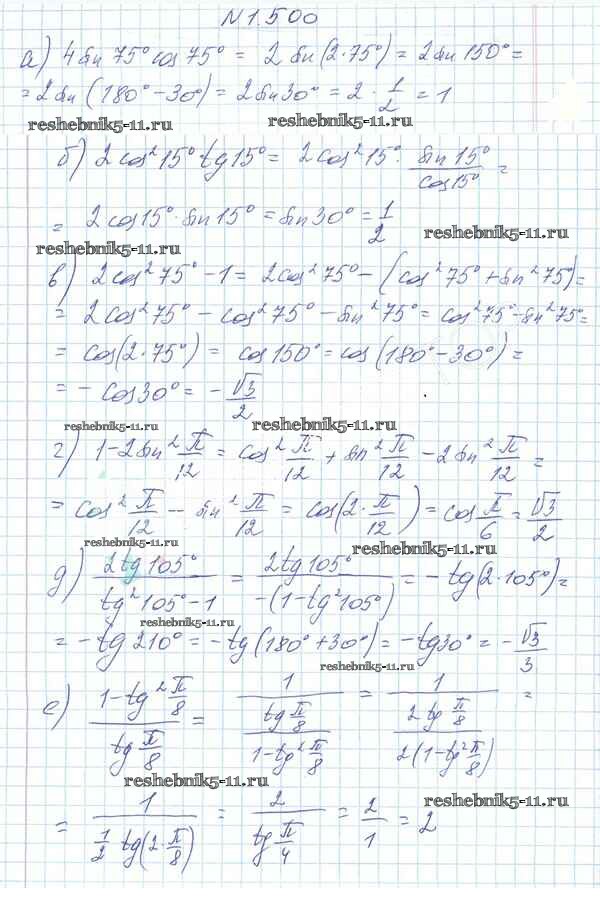 N 1.500
а) 4 sin 75° cos 75° = 2 sin(2·75°) = 2 sin 150° =
= 2 sin (180° − 30°) = 2 sin 30° = 2 · 1/2 = 1
reshebnik5-11.ru reshebnik5-11.ru
б) 2 cos² 15° tg 15° = 2 cos² 15° · sin 15°/cos 15° =
= 2 cos 15° · sin 15° = sin 30° = 1/2
reshebnik5-11.ru reshebnik5-11.ru
в) 2 cos² 75° − 1 = 2 cos² 75° − (cos² 75° + sin² 75°) =
= 2 cos² 75° − cos² 75° − sin² 75° = cos² 75° − sin² 75° =
= cos(2·75°) = cos 150° = cos (180° − 30°) =
= − cos 30° = − √3/2
reshebnik5-11.ru reshebnik5-11.ru
г) 1 − 2 sin² π/12 = cos² π/12 + sin² π/12 − 2 sin² π/12 =
= cos² π/12 − sin² π/12 = cos(2 · π/12) = cos π/6 = √3/2
reshebnik5-11.ru reshebnik5-11.ru
д) 2 tg 105°/(tg² 105° − 1) = 2 tg 105°/(−(1 − tg² 105°)) = − tg(2·105°) =
reshebnik5-11.ru
= − tg 210° = − tg (180° + 30°) = − tg 30° = − √3/3
reshebnik5-11.ru
е) (1 − tg² π/8)/(tg π/8) = 1/((tg π/8)/(1 − tg² π/8)) = 1/((2 tg π/8)/(2(1 − tg² π/8))) =
reshebnik5-11.ru
= 1/(1/2 tg(2 · π/8)) = 2/(tg π/4) = 2/1 = 2
reshebnik5-11.ru